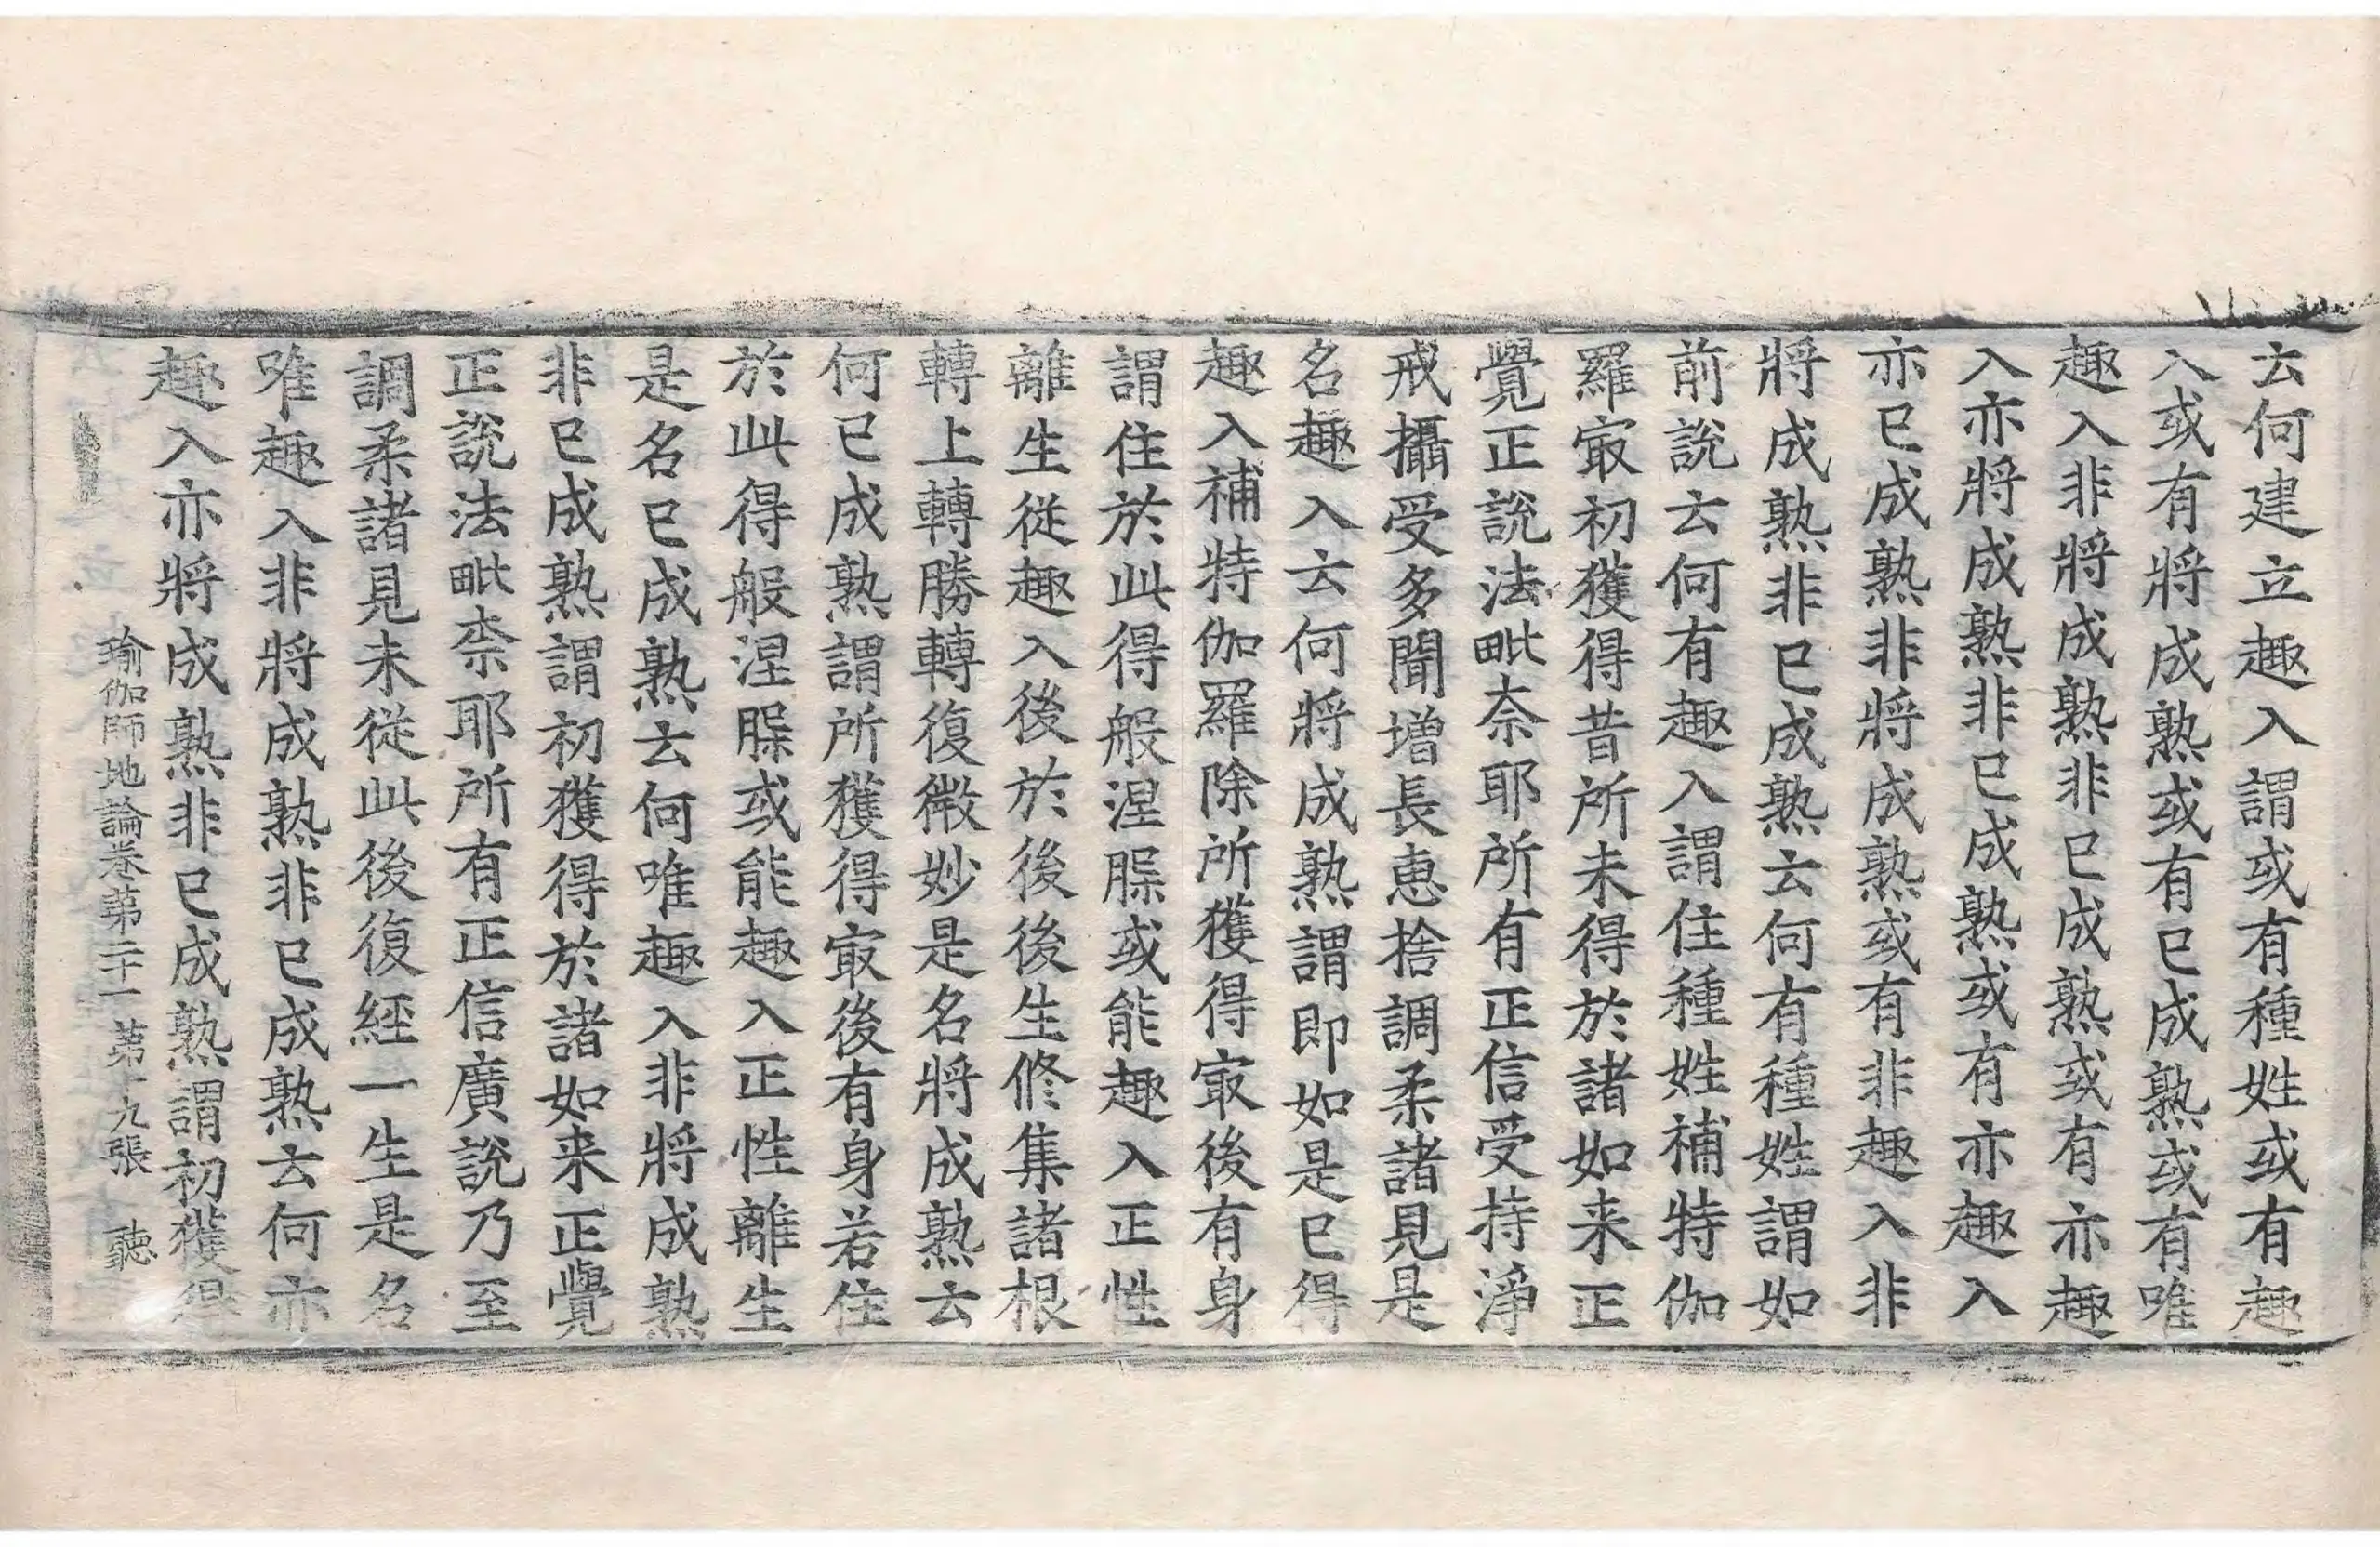 云何建立趣入謂或有種姓或有趣
入或有將成熟或有已成熟或有唯
趣入非將成熟非已成熟或有亦趣
入亦將成熟非已成熟或有亦趣入
亦已成熟非將成熟或有非趣入非
將成熟非已成熟云何有種姓謂如
前說云何有趣入謂住種姓補特伽
羅㝡初獲得昔所未得於諸如来正
覺正說法毗奈耶所有正信受持淨
戒攝受多聞增長恵捨調柔諸見是
名趣入云何將成熟謂即如是已得
趣入補特伽羅除所獲得㝡後有身
謂住於此得般涅槃或能趣入正性
離生從趣入後於後後生修集諸根
轉上轉勝轉復微妙是名將成熟云
何已成熟謂所獲得㝡後有身若住
於此得般涅槃或能趣入正性離生
是名已成熟云何唯趣入非將成熟
非已成熟謂初獲得於諸如来正覺
正說法毗柰耶所有正信廣說乃至
調柔諸見未從此後復經一生是名
唯趣入非將成熟非已成熟云何亦
趣入亦將成熟非已成熟謂初獲得
瑜伽師地論卷第二十一 第十九張 聽